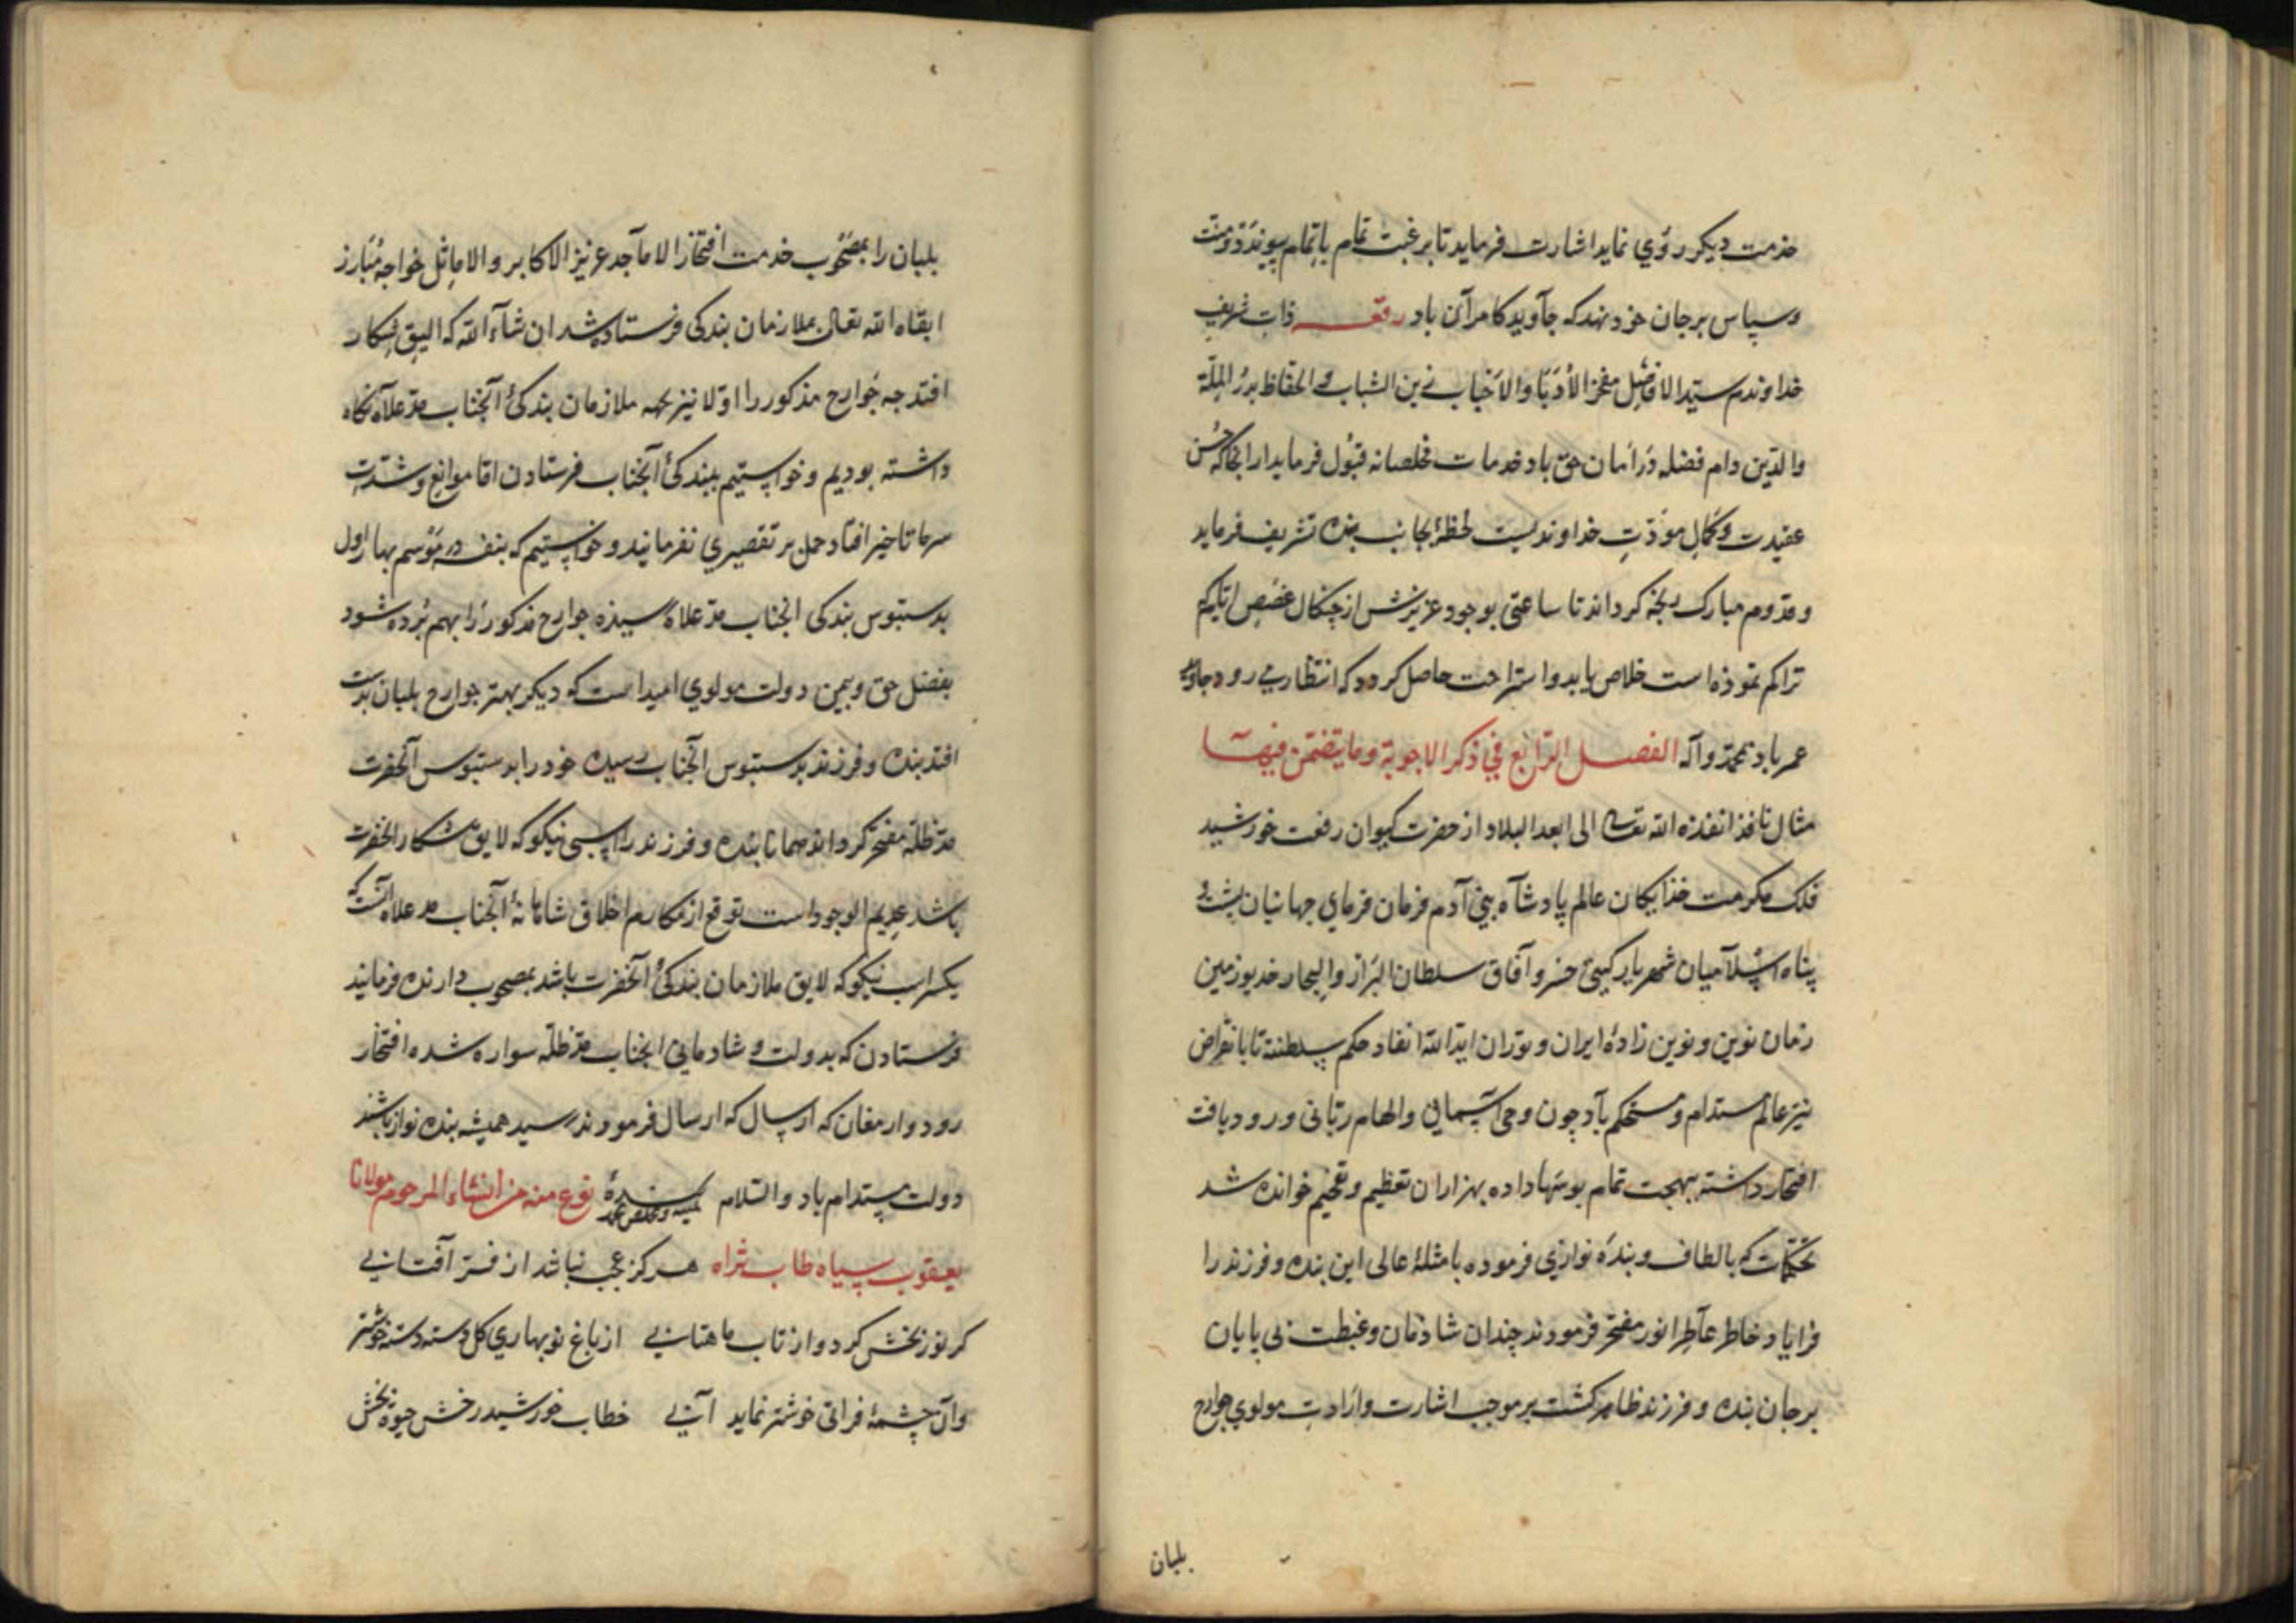 خدمت دیکر روی نماید اشارت فرماید تا برغبت تمام باتمام پیوندد و منت
وسپاس برجان خود نهد که جآوید کامرآن باد رقعه ذات شریف
خداوندم سید الافاضل مفخر الأدبا والاخباب زین الشباب الحفاظ بدر الملة
والدین دام فضله در امان حق باد خدمات مخلصانه قبول فرماید از انجا که حسن
عقیدت وکمال مودت خداوندیست لحظهٔ بجانب بنده تشریف فرماید
وقدوم مبارک رنجه کرداند تا ساعتی بوجود عزیزش از چنکال غصص ایام که
تراکم نموذه است خلاص یابد واستراحت حاصل کردد که انتظار می رود جاوید
عمر باد بمحمد وآله الفصل الرابع فی ذکر الاجوبة وما یتضمن فیها
مثال نافذ انفذه الله تعالی الی ابعد البلاد از حضرت کیوان رفعت خورشید
فلک مکرمت خذایکان عالم پادشآه بنی آدم فرمان فرمای جهانیان پشت و
پناه اسلآمیان شهریار کیتی خسرو آفاق سلطان البراز والبحار خدیو زمین
زمان نوین ونوین زادهٔ ایران وتوران ابد الله انفاد حکم سلطنته تا بانقراض
نیز عالم مستدام ومستحکم باد چون وحی آسمانی والهام ربانی ورود یافت
افتخار داشته ببهجت تمام بوسها داده بهزاران تعظیم وتفخیم خوانده شد
تحکمات که بالطاف وبنده نوازی فرموده بامثلهٔ عالی این بنده وفرزند را
فرایاد خاطر عاطر انور مفتخر فرمودند چندان شادمان وغبطت بی پایان
برجان بنده وفرزند ظاهر کشت برموجب اشارت وارادت مولوی جوارح
بلبان
بلبان را بمصحوب خدمت افتخار الاماجد عزیز الاکابر والاماثل خواجه مبارز
ابقاه الله تعالی بملازمان بندکی فرستاده شد ان شآء الله که الیق شکار
افتد چه جوارح مذکور را اولا نیز بجهه ملازمان بندکئ آنجناب مد علاه نکاه
داشته بودیم وخواستیم ببندکئ آنجناب فرستادن اما موانع وشدت
سرما تاخیر افتاد حمل بر تقصیری نفرمایند وخواستیم که بنفسه در موسم بهار اول
بدستبوس بندکی انجناب مد علاه رسیذه جوارح مذکور را بهم برده شود
بفضل حق ویمن دولت مولوی امید است که دیکر بهتر جوارح بلبان بدست
افتد بنده وفرزند بدستبوس آنجناب رسیده خود را بدستبوس آنحضرت
مد ظله مفتخر کرداند همانا بنده وفرزند را اسبی نیکو که لایق شکار آنحضرت
باشد عدیم الوجود است توقع از مکارم اخلاق شاهانهٔ آنجناب مد علاه آنست که
یکسر اسب نیکو که لایق ملازمان بندکئ آنحضرت باشد بمصحوب دارنده فرمایند
فرستادن که بدولت و شادمانی انجناب مد ظله سواره شده افتخار
رود وارمغان که ارسال که ارسال فرمودند رسید همیشه بنده نواز باشند
دولت مستدام باد والسلام بنده کمینه ومخلص نوع منه من انشاء المرحوم مولانا
یعقوب سیاه طاب ثراه هرکز عجب نباشد از فر آفتابی
کر نور بخش کردد از تاب ماهتابی از باغ نوبهاری کل دسته دسته خوشتر
وآن چشمهٔ فراتی خوشتر نماید آبی خطاب خورشید رخش حیوة بخش